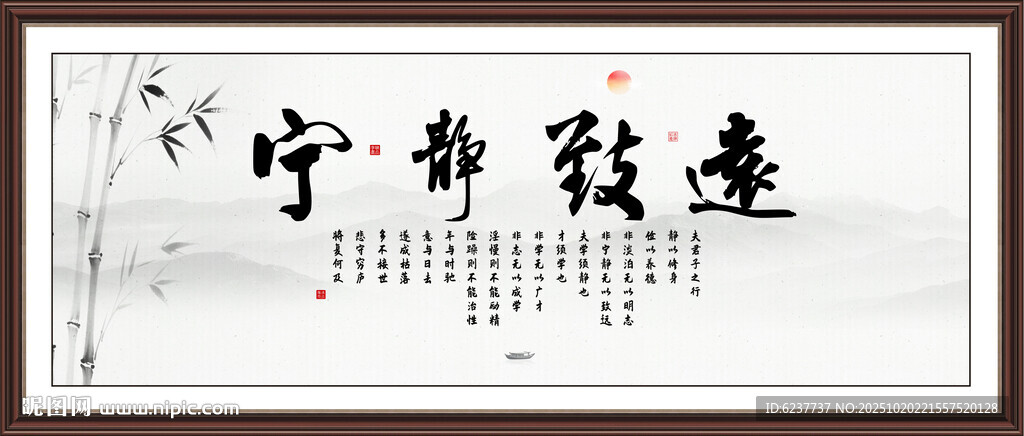 宁静致遠
夫君子之行
静以修身
俭以养德
非淡泊无以明志
非宁静无以致远
夫学须静也
才须学也
非学无以广才
非志无以成学
淫慢则不能励精
险躁则不能治性
年与时驰
意与日去
遂成枯落
多不接世
悲守穷庐
将复何及
昵图网 www.nipic.com
ID:6237737 NO:20251020221557520128